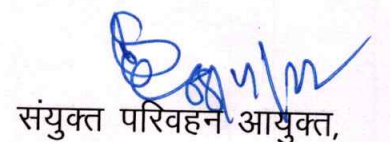 संयुक्त परिवहन आयुक्त,